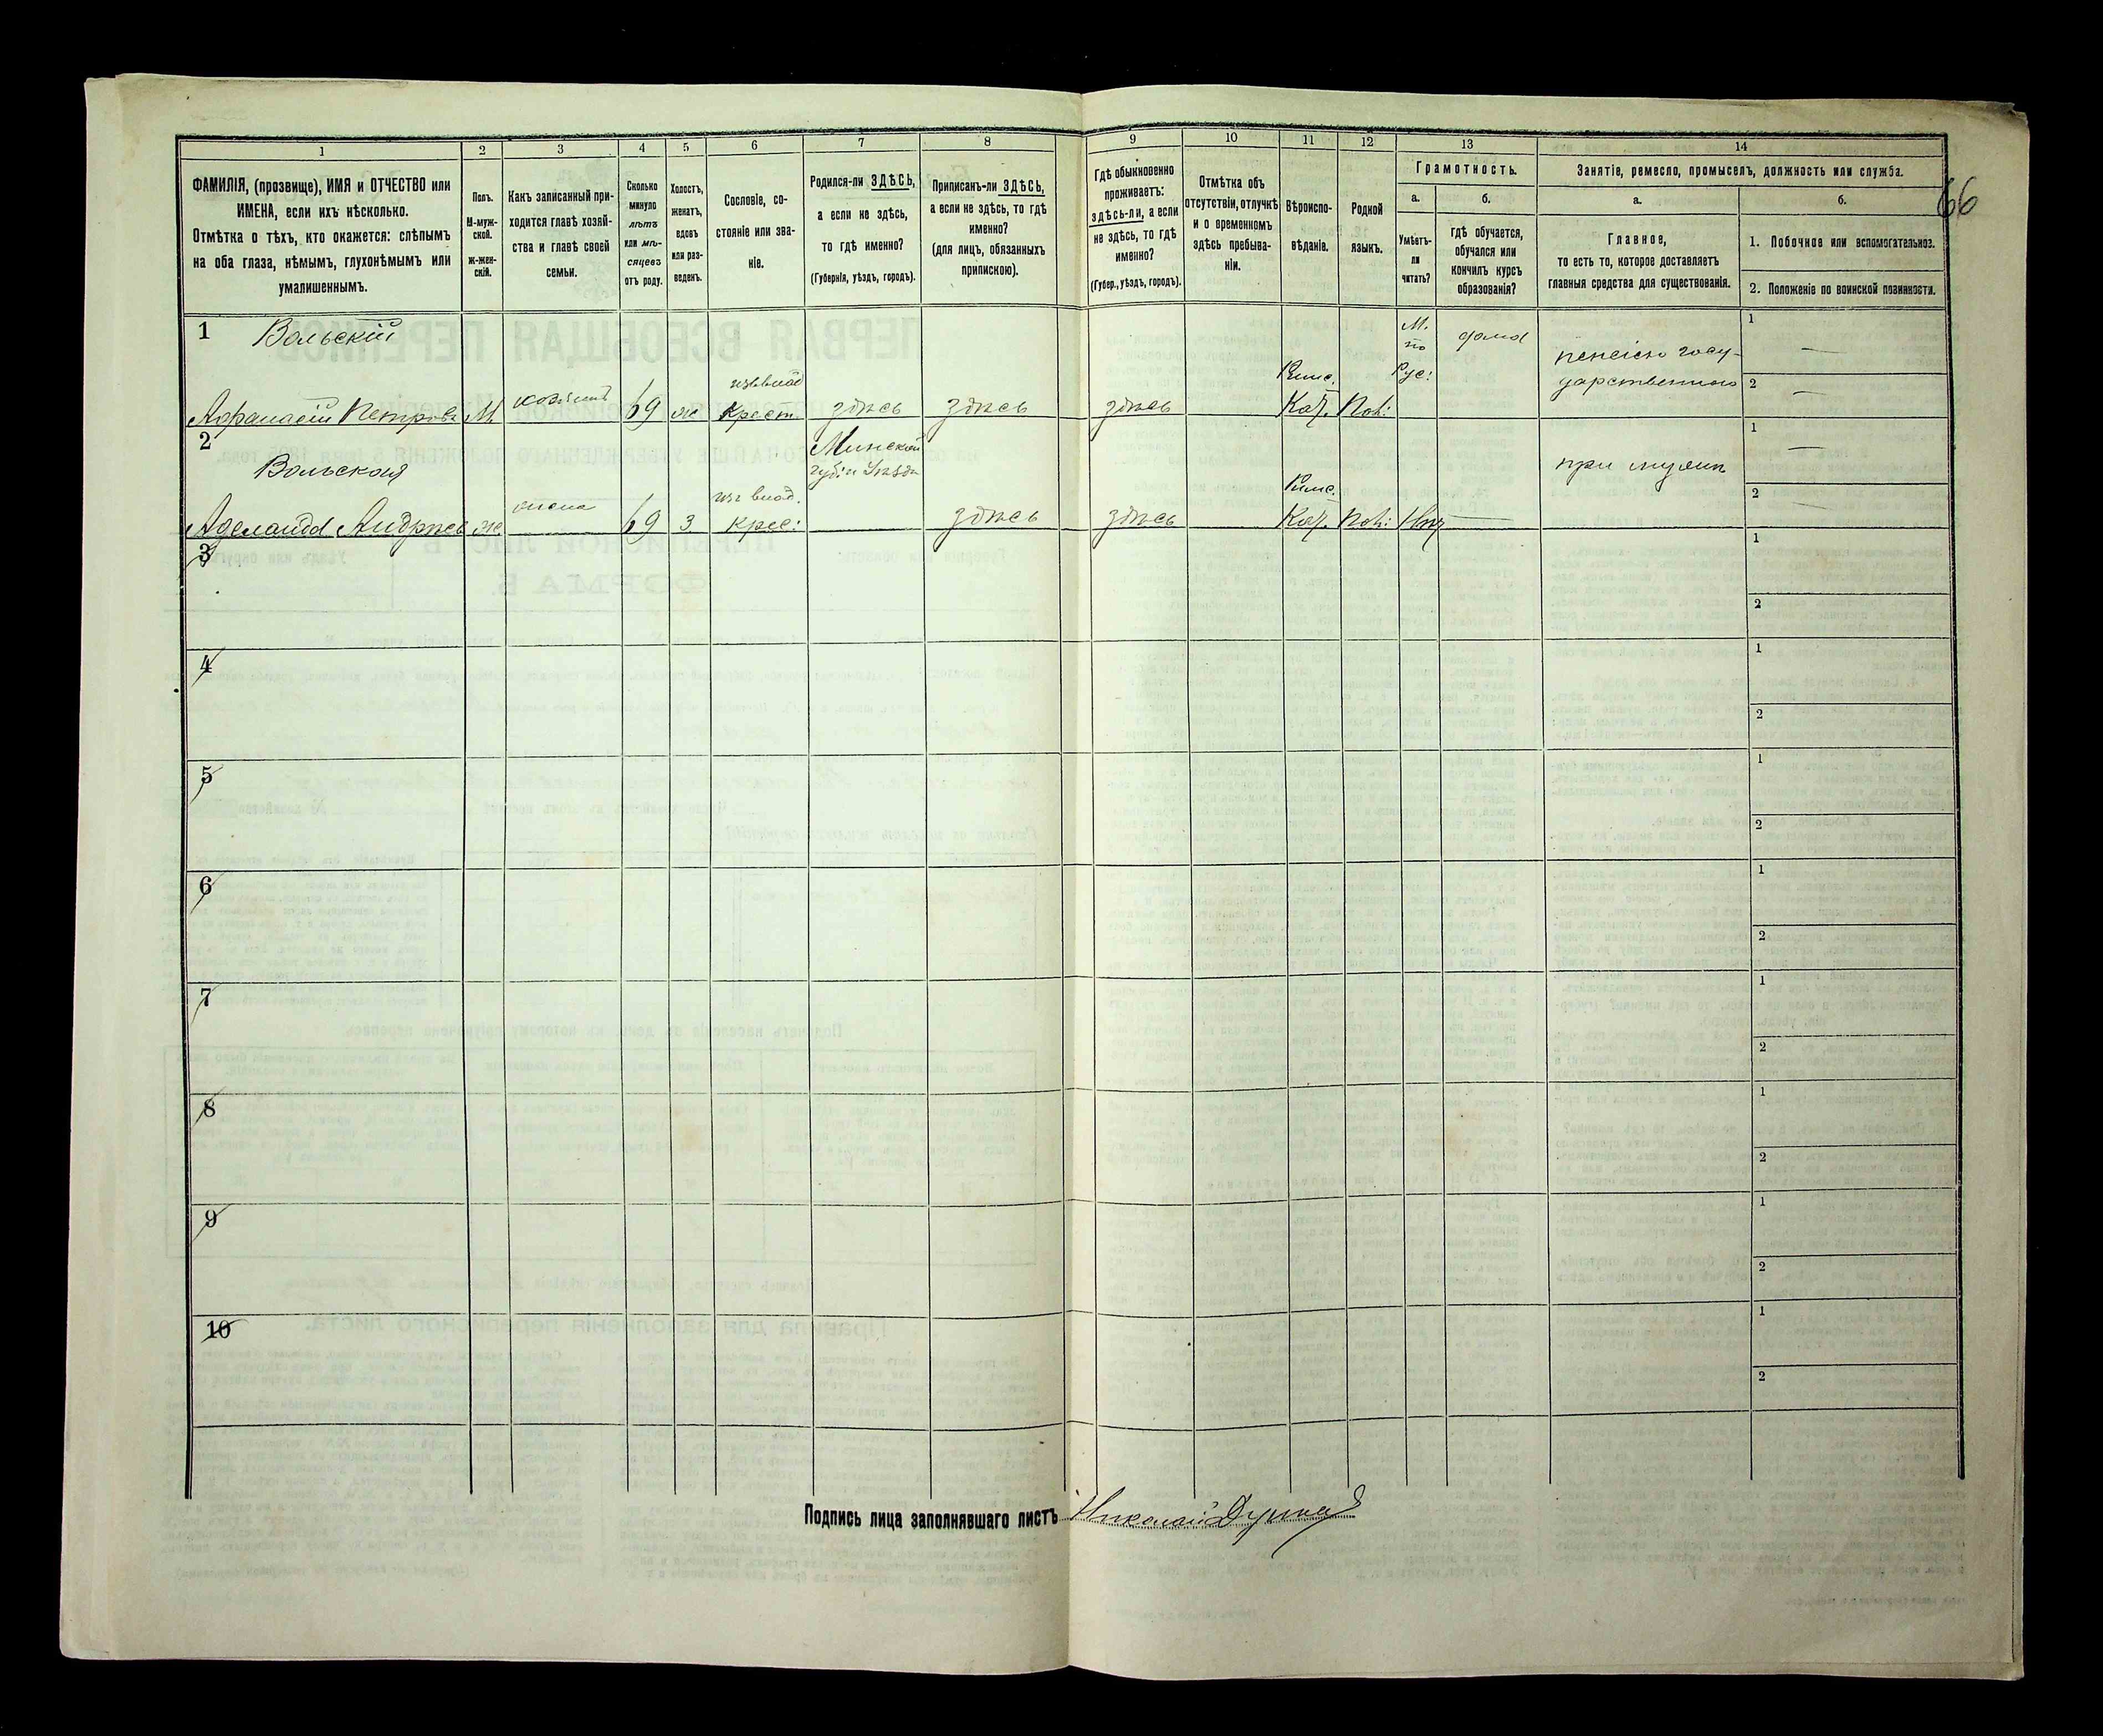 66
1 2 3 4 5 6 7 8 9 10 11 12 13 14
ФАМИЛІЯ, (прозвище), ИМЯ и ОТЧЕСТВО или
ИМЕНА, если ихъ нѣсколько.
Отмѣтка о тѣхъ, кто окажется: слѣпымъ
на оба глаза, нѣмымъ, глухонѣмымъ или
умалишеннымъ.
Полъ.
М-муж-
ской.
ж-жен-
скій.
Какъ записанный при-
ходится главѣ хозяй-
ства и главѣ своей
семьи.
Сколько
минуло
лѣтъ
или мѣ-
сяцевъ
отъ роду.
Холостъ,
женатъ,
вдовъ
или раз-
веденъ.
Сословіе, со-
стояніе или зва-
ніе.
Родился-ли ЗДѢСЬ,
а если не здѣсь,
то гдѣ именно?
(Губернія, уѣздъ, городъ).
Приписанъ-ли ЗДѢСЬ,
а если не здѣсь, то гдѣ
именно?
(для лицъ, обязанныхъ
припискою).
Гдѣ обыкновенно
проживаетъ:
здѣсь-ли, а если
не здѣсь, то гдѣ
именно?
(Губер., уѣздъ, городъ).
Отмѣтка объ
отсутствіи, отлучкѣ
и о временномъ
здѣсь пребыва-
ніи.
Вѣроиспо-
вѣданіе.
Родной
языкъ.
Грамотность.
а.
Умѣетъ-
ли
читать?
б.
гдѣ обучается,
обучался или
кончилъ курсъ
образованія?
Занятіе, ремесло, промыселъ, должность или служба.
а.
Главное,
то есть то, которое доставляетъ
главныя средства для существованія.
б.
1. Побочное или вспомогательное.
2. Положеніе по воинской повинности.
1 Вольскій
Афранасій Петровъ М. хозяинъ 69 ж
изъ влад
Крест. здѣсь здѣсь здѣсь
Римс.
Кат. Пол:
по
Рус: дома
пенсіею госу-
дарственною
1
2
2 Вольская
Аделаида Андреев же жена 69 з
изъ влад.
Крес:
Минской
губ: и Уѣзда
здѣсь здѣсь
Римс.
Кат. Пол: Нѣт
при мужѣ
1
2
3 1
2
4 1
2
5 1
2
6 1
2
7 1
2
8 1
2
9 1
2
10 1
2
Подпись лица заполнявшаго листъ Николай